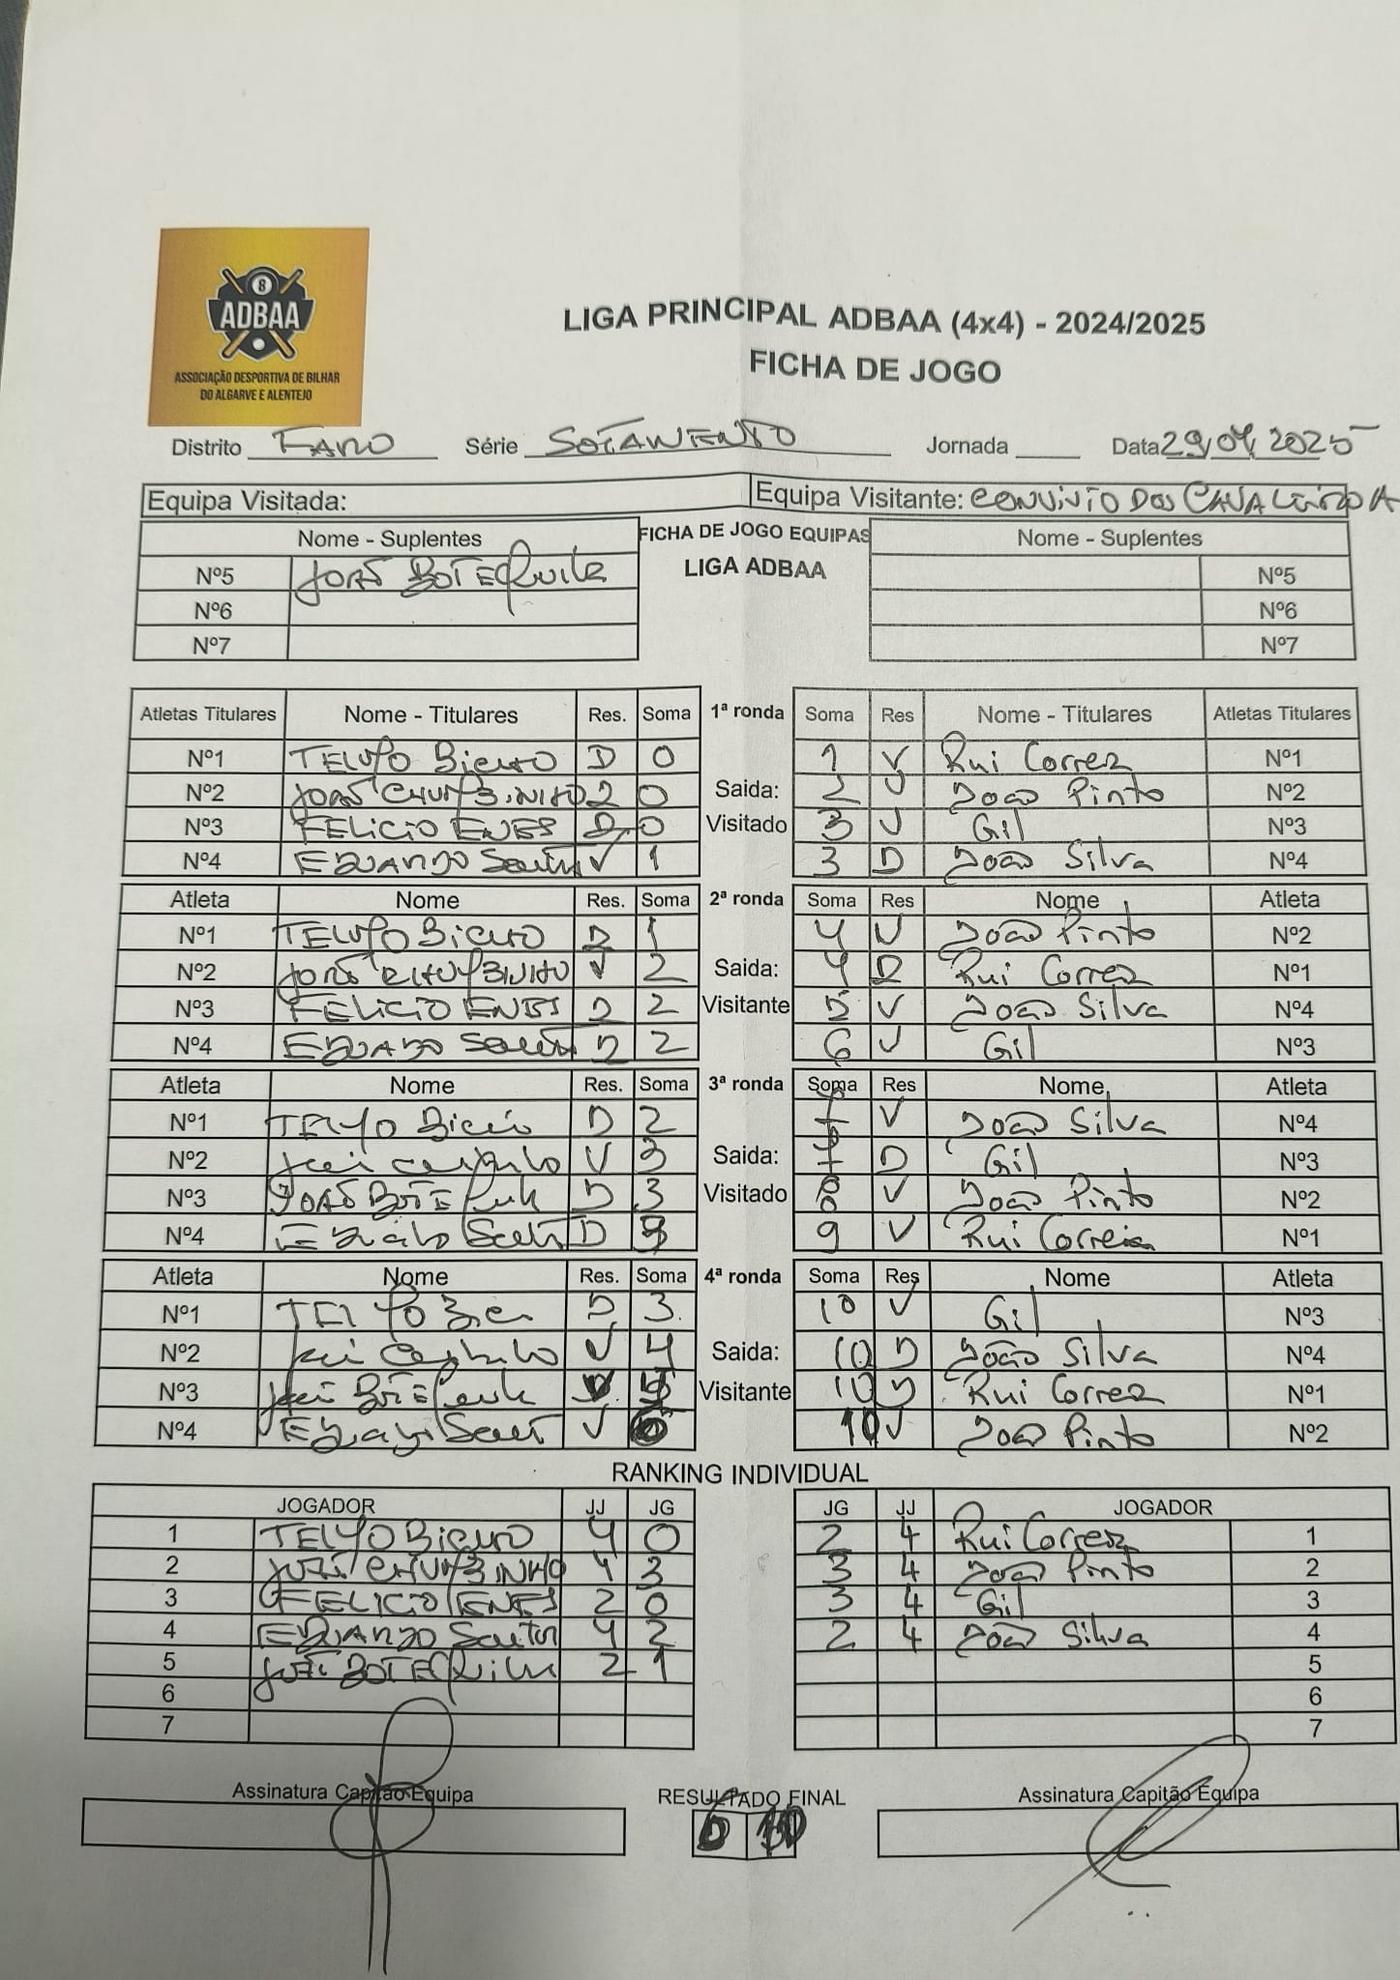 8
ADBAA
ASSOCIAÇÃO DESPORTIVA DE BILHAR
DO ALGARVE E ALENTEJO
LIGA PRINCIPAL ADBAA (4x4) - 2024/2025
FICHA DE JOGO
Distrito FARO Série SOTAVENTO Jornada Data 29/04/2025
Equipa Visitada: Equipa Visitante: CONVIVIO DOS CAVALEIROS A
Nome - Suplentes FICHA DE JOGO EQUIPAS Nome - Suplentes
Nº5 JOÃO BOTEQUILA LIGA ADBAA Nº5
Nº6 Nº6
Nº7 Nº7
Atletas Titulares Nome - Titulares Res. Soma 1ª ronda Soma Res Nome - Titulares Atletas Titulares
Nº1 TELMO D 0 1 V Rui Correia Nº1
Nº2 JOÃO 0 Saida: 2 V João Pinto Nº2
Nº3 FELICIO ENES D 0 Visitado 3 V Gil Nº3
Nº4 EDUARDO V 1 3 D João Silva Nº4
Atleta Nome Res. Soma 2ª ronda Soma Res Nome Atleta
Nº1 TELMO D 1 4 V João Pinto Nº2
Nº2 JOÃO V 2 Saida: 4 D Rui Correia Nº1
Nº3 FELICIO ENES D 2 Visitante 5 V João Silva Nº4
Nº4 EDUARDO D 2 6 V Gil Nº3
Atleta Nome Res. Soma 3ª ronda Soma Res Nome Atleta
Nº1 TELMO D 2 7 V João Silva Nº4
Nº2 V 3 Saida: 7 D Gil Nº3
Nº3 JOÃO D 3 Visitado 8 V João Pinto Nº2
Nº4 D 3 9 V Rui Correia Nº1
Atleta Nome Res. Soma 4ª ronda Soma Res Nome Atleta
Nº1 TELMO D 3 10 V Gil Nº3
Nº2 V 4 Saida: 10 D João Silva Nº4
Nº3 Visitante 10 D Rui Correia Nº1
Nº4 V 10 V João Pinto Nº2
RANKING INDIVIDUAL
JOGADOR JJ JG JG JJ JOGADOR
1 TELMO 4 0 2 4 Rui Correia 1
2 JOÃO 4 3 3 4 João Pinto 2
3 FELICIO ENES 2 0 3 4 Gil 3
4 EDUARDO 4 2 2 4 João Silva 4
5 JOÃO BOTEQUILA 2 1 5
6 6
7 7
Assinatura Capitão Equipa RESULTADO FINAL Assinatura Capitão Equipa